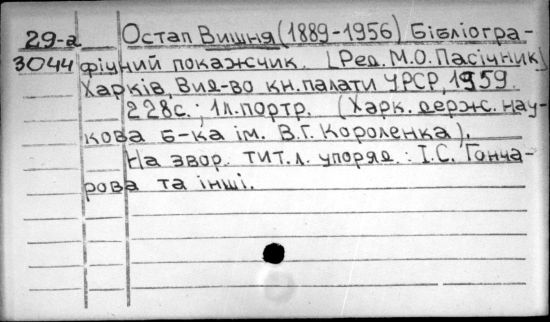 29-а Остап Вишня (1889-1956) Бібліогра-
3044 фічний покажчик. [Ред. М.О. Пасічник]
Харків, Вид-во кн. палати УРСР, 1959.
228с.; 1л. портр. (Харк. держ. нау-
кова б-ка ім. В.Г. Короленка).
На звор. тит. л. упоряд.: І.С. Гонча-
рова та інші.